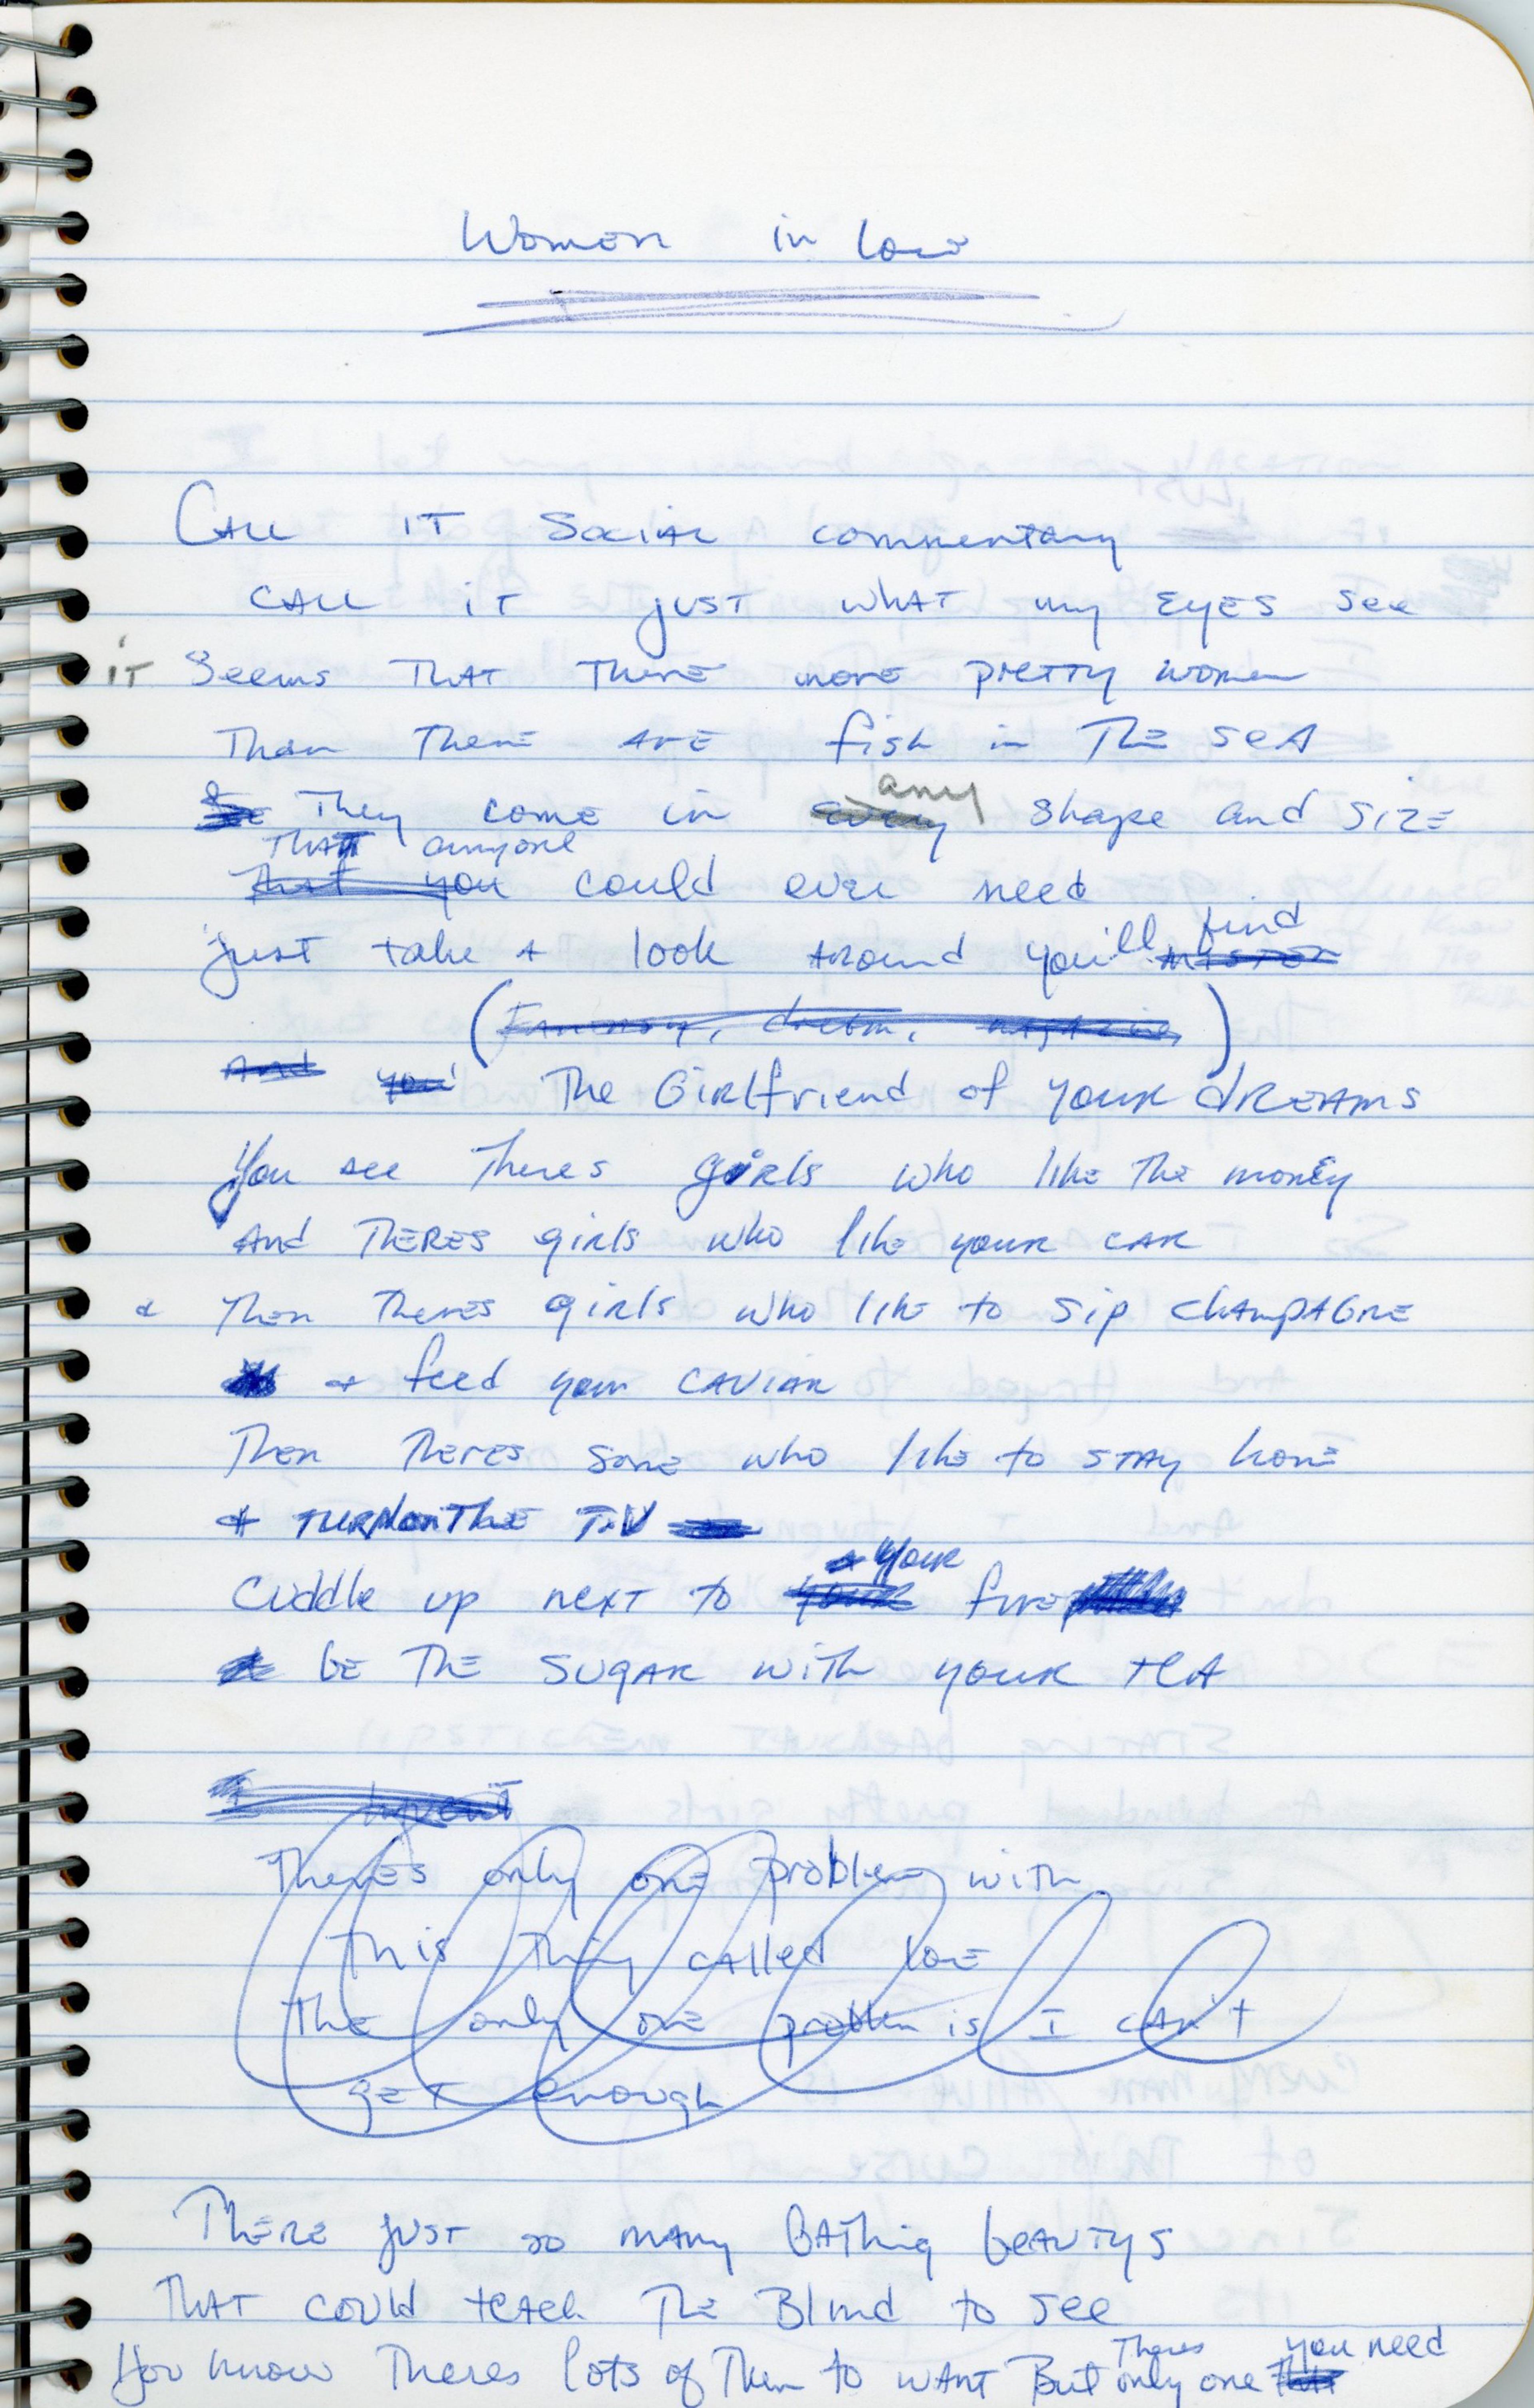 Women in love
CALL IT Social commentary
CALL iT just what my EYES see
iT Seems THAT There more pretty women
Than There are fish in The seA
They come in every any shape and size
THAT anyone
That you could ever need
just take a look around you'll find
(Fantasy, dream, magazine)
And you' The Girlfriend of your dreams
You see Theres girls who like The money
And THERES girls who like your car
& Then Theres girls who like to sip champagne
& feed your caviar
Then Theres some who like to stay home
& TURN on The T.V
your
Cuddle up next to your fire
be The sugar with your teA
Theres only one problem with
This thing called love
The only one problem is I can't
get enough
There just so many Bathing beautys
THAT could teach The Blind to see
Theres you need
You know Theres lots of Them to want But only one